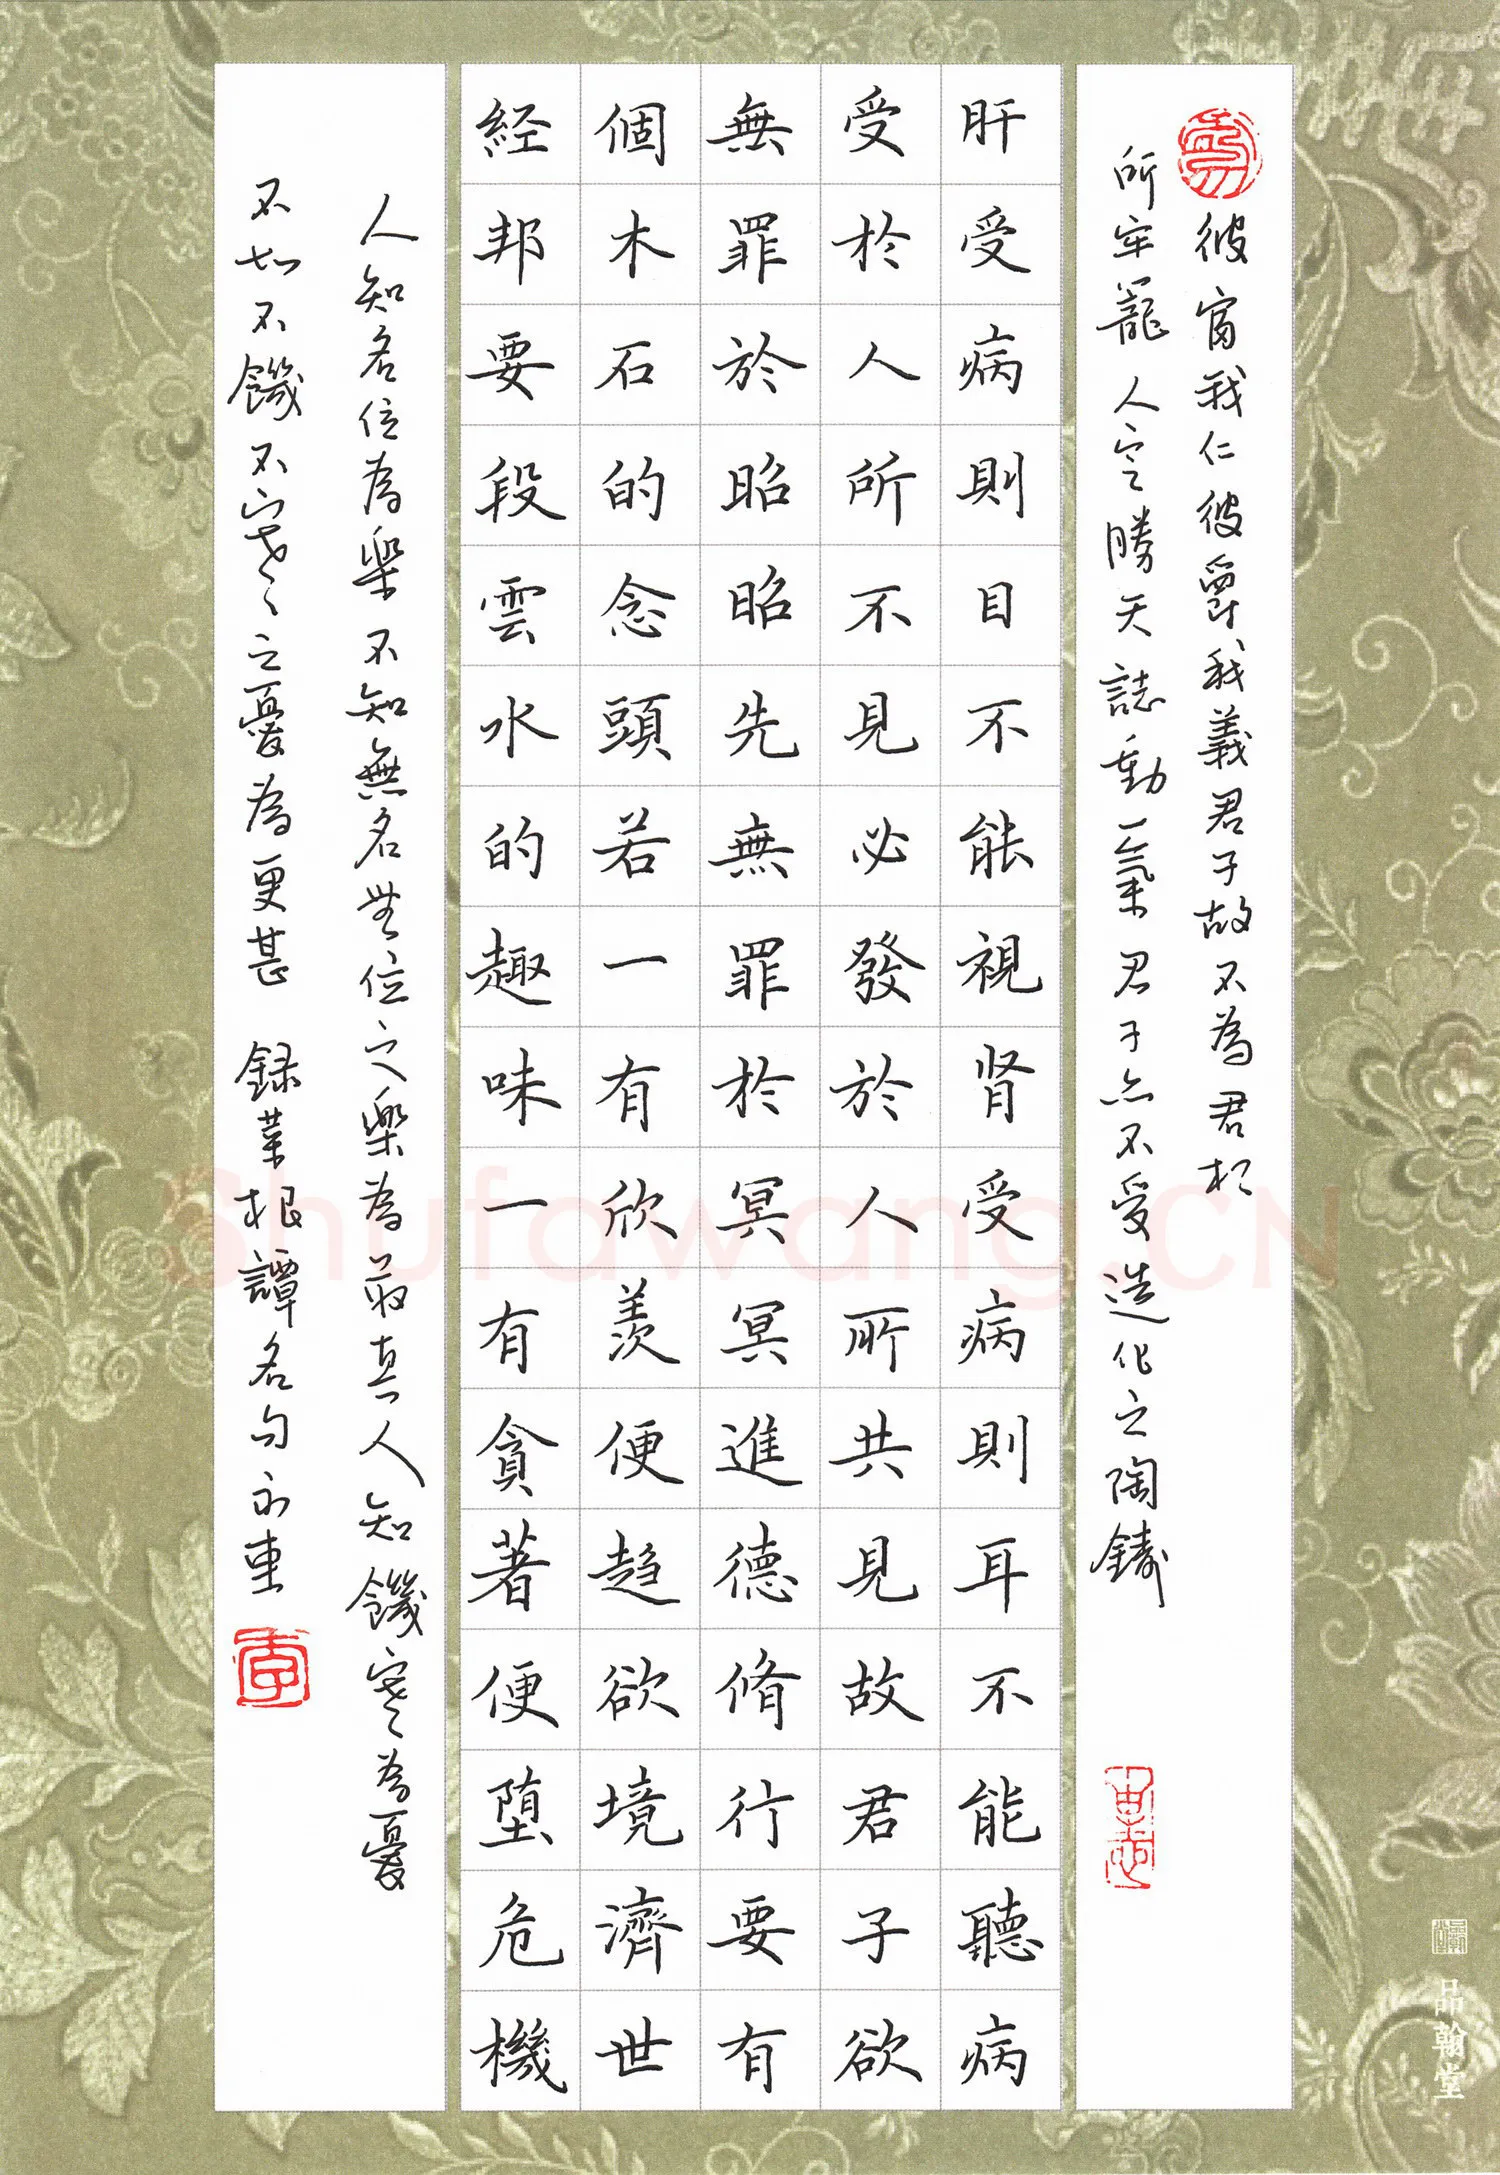 彼富我仁彼爵我義君子故不為君相
所牢籠人定勝天誌動氣君子亦不受造化之陶鑄
肝受病則目不能視腎受病則耳不能聽病
受於人所不見必發於人所共見故君子欲
無罪於昭昭先無罪於冥冥進德脩行要有
個木石的念頭若一有欣羨便趨欲境濟世
経邦要段雲水的趣味一有貪著便墮危機
人知名位為樂不知無名無位之樂為最真人知饑寒為憂
不知不饑不寒之憂為更甚 録菜根譚名句
品翰堂
Shufawang.CN